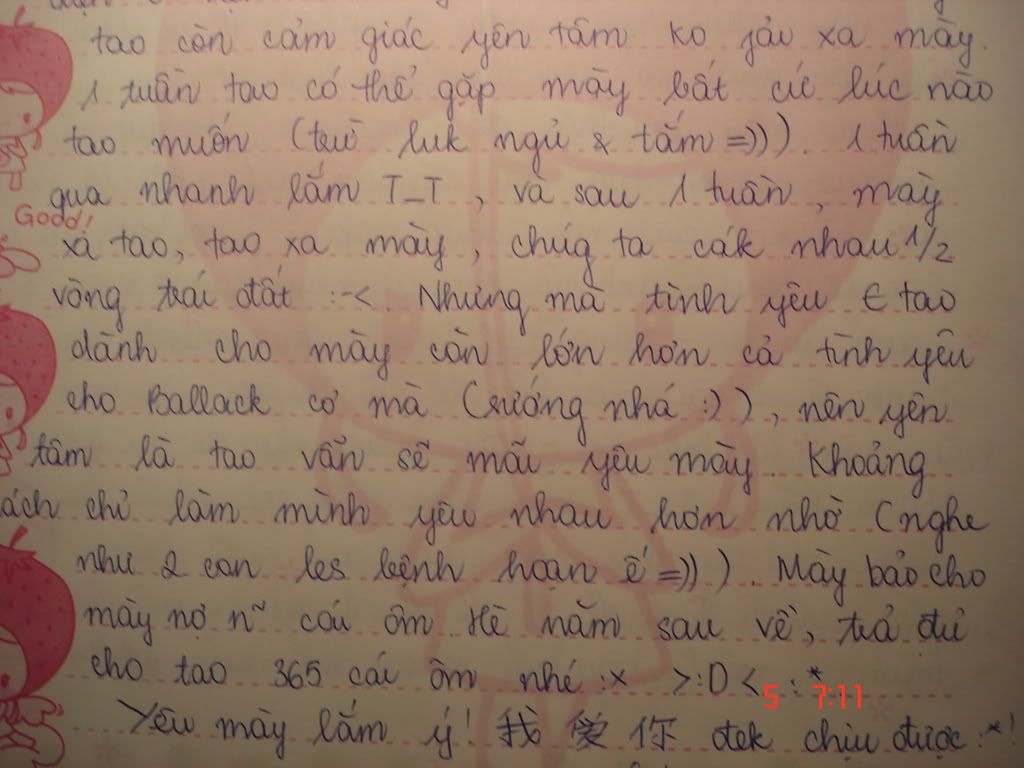 tao còn cảm giác yên tâm ko fải xa mày.
1 tuần tao có thể gặp mày bất cứ lúc nào
tao muốn (trừ luk ngủ & tắm =))). 1 tuần
qua nhanh lắm T_T, và sau 1 tuần, mày
Good!
xa tao, tao xa mày, chúg ta cák nhau 1/2
vòng trái đất :-<. Nhưng mà tình yêu € tao
dành cho mày còn lớn hơn cả tình yêu
cho Ballack cơ mà (sướng nhá :)), nên yên
tâm là tao vẫn sẽ mãi yêu mày. Khoảng
ách chỉ làm mình yêu nhau hơn nhờ (nghe
như 2 con les bệnh hoạn ế =))). Mày bảo cho
mày nợ n~ cái ôm. Hè năm sau về, trả đủ
cho tao 365 cái ôm nhé :x >:D< :*
5 7:11
Yêu mày lắm ý! 我 爱 你 đek chịu được :*!